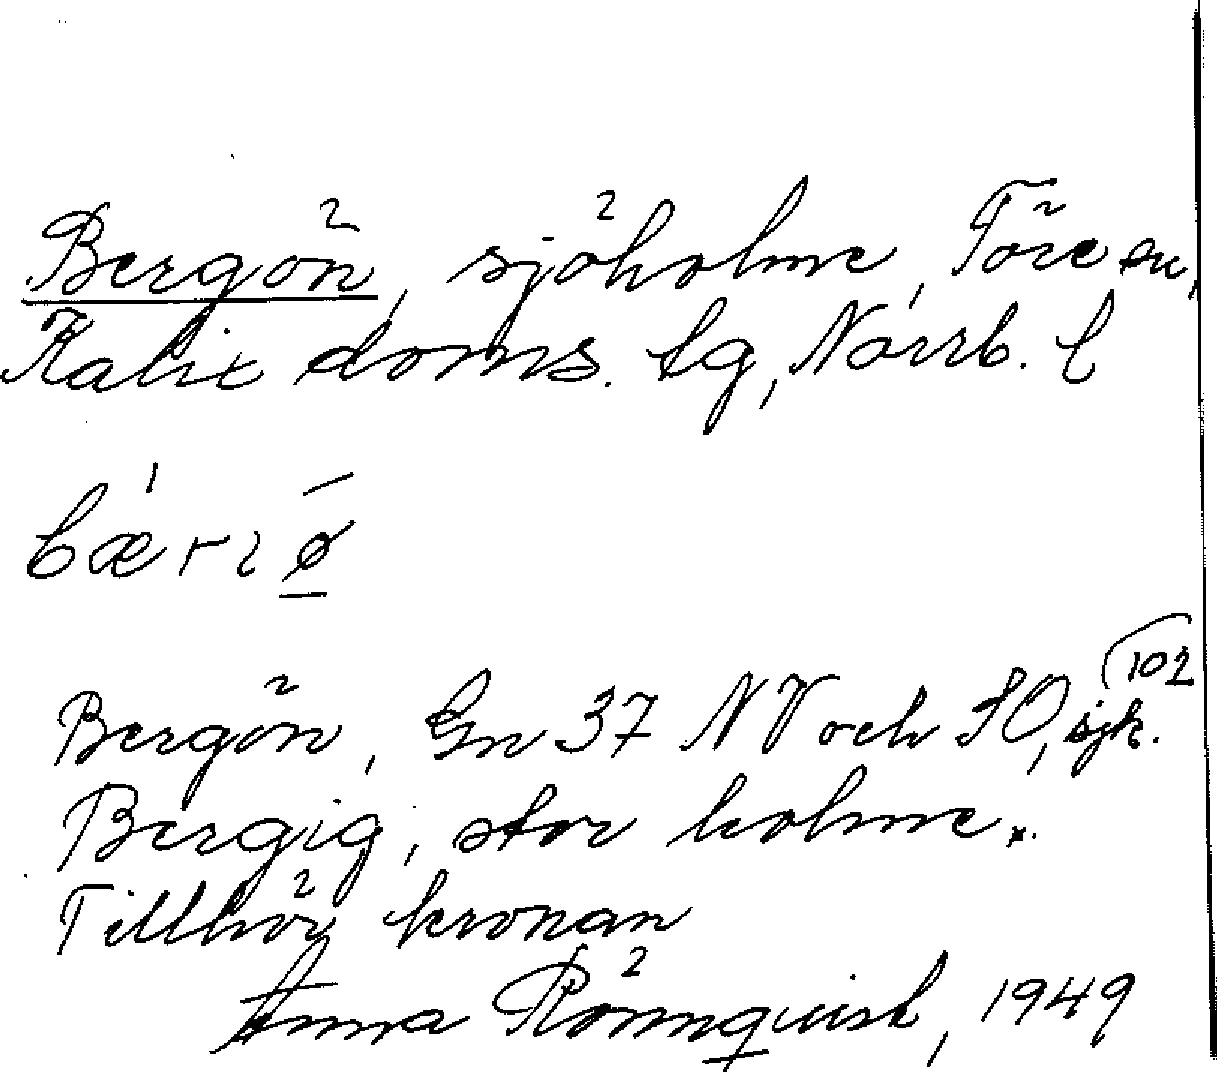 Bergön, sjöholme, Töre sn,
Kalix doms. lg, Norrb. l
bæriø
102
Bergön, Gn 37 NV och SO, sjk.
Bergig, stor holme.
Tillhör kronan
Anna Rönnquist, 1949